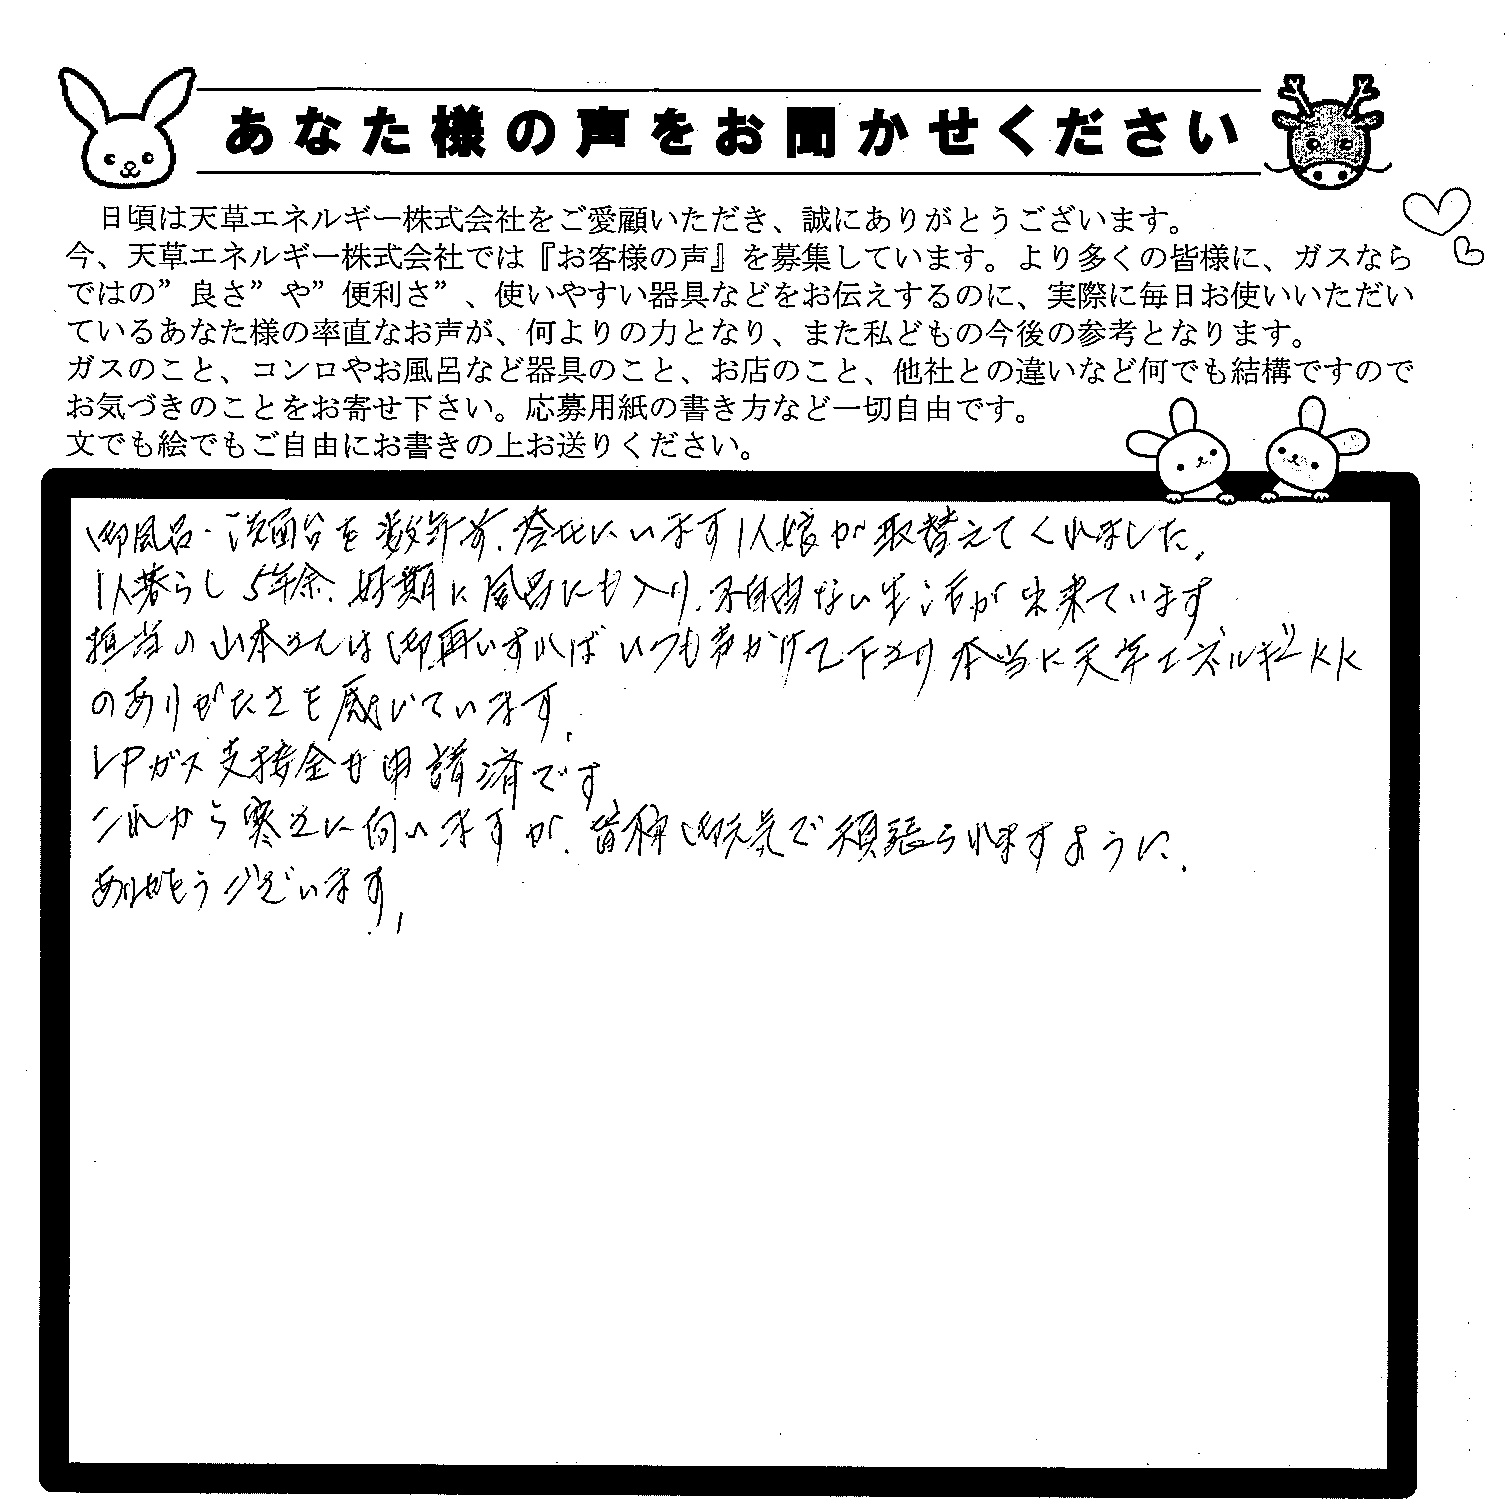 あなた様の声をお聞かせください
日頃は天草エネルギー株式会社をご愛顧いただき、誠にありがとうございます。
今、天草エネルギー株式会社では『お客様の声』を募集しています。より多くの皆様に、ガスなら
ではの”良さ”や”便利さ”、使いやすい器具などをお伝えするのに、実際に毎日お使いいただい
ているあなた様の率直なお声が、何よりの力となり、また私どもの今後の参考となります。
ガスのこと、コンロやお風呂など器具のこと、お店のこと、他社との違いなど何でも結構ですので
お気づきのことをお寄せ下さい。応募用紙の書き方など一切自由です。
文でも絵でもご自由にお書きの上お送りください。
御風呂・洗面台を数年前、他にいます1人娘が取替えてくれました。
1人暮らし5年余、に風呂にも入り、不自由ない生活が出来ています
担当の山本さんは御いすればいつも声かけて下さり本当に天草エネルギーKK
のありがたさを感じています。
LPガス支援金も申請済です
これから寒さに向いますが、皆様御元気で頑張られますように。
ありがとうございます。